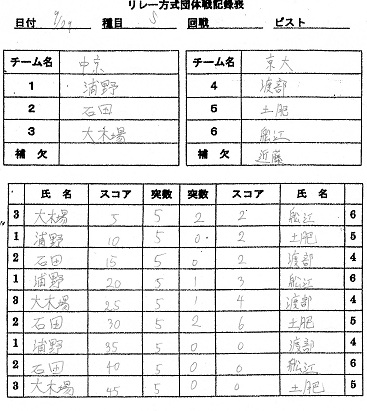 リレー方式団体戦記録表
日付 9/29 種目 S 回戦 ピスト
チーム名 中京 チーム名 京大
1 浦野 4 渡部
2 石田 5 土肥
3 大木場 6 舩江
補欠 補欠 近藤
氏名 スコア 突数 突数 スコア 氏名
3 大木場 5 5 2 2 舩江 6
1 浦野 10 5 0 2 土肥 5
2 石田 15 5 0 2 渡部 4
1 浦野 20 5 1 3 舩江 6
3 大木場 25 5 1 4 渡部 4
2 石田 30 5 2 6 土肥 5
1 浦野 35 5 0 0 渡部 4
2 石田 40 5 0 0 舩江 6
3 大木場 45 5 0 0 土肥 5